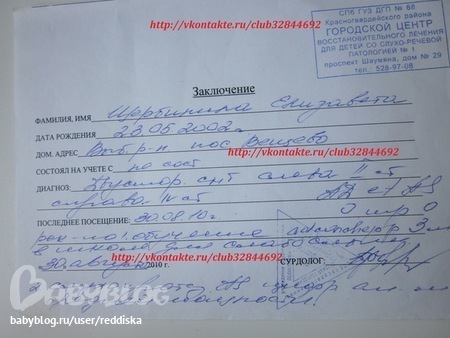 http://vkontakte.ru/club32844692
СПб ГУЗ ДГП № 68
Красногвардейского района
ГОРОДСКОЙ ЦЕНТР
ВОССТАНОВИТЕЛЬНОГО ЛЕЧЕНИЯ
ДЛЯ ДЕТЕЙ СО СЛУХО-РЕЧЕВОЙ
ПАТОЛОГИЕЙ № 1
проспект Шаумяна, дом № 29
тел.: 528-97-08
Заключение
http://vkontakte.ru/club32844692
ФАМИЛИЯ, ИМЯ Щербинина Елизавета
ДАТА РОЖДЕНИЯ 23.05.2002 г.
ДОМ. АДРЕС Выб. р-н пос Вещево
http://vkontakte.ru/club32844692
СОСТОЯЛ НА УЧЕТЕ С не сост
ДИАГНОЗ: слева II ст
справа IV ст AD et AS
ПОСЛЕДНЕЕ ПОСЕЩЕНИЕ: 30.08.10 г.
в школе для
30 август 2010 г.
http://vkontakte.ru/club32844692
СУРДОЛОГ:
BABYBLOG
babyblog.ru/user/reddiska